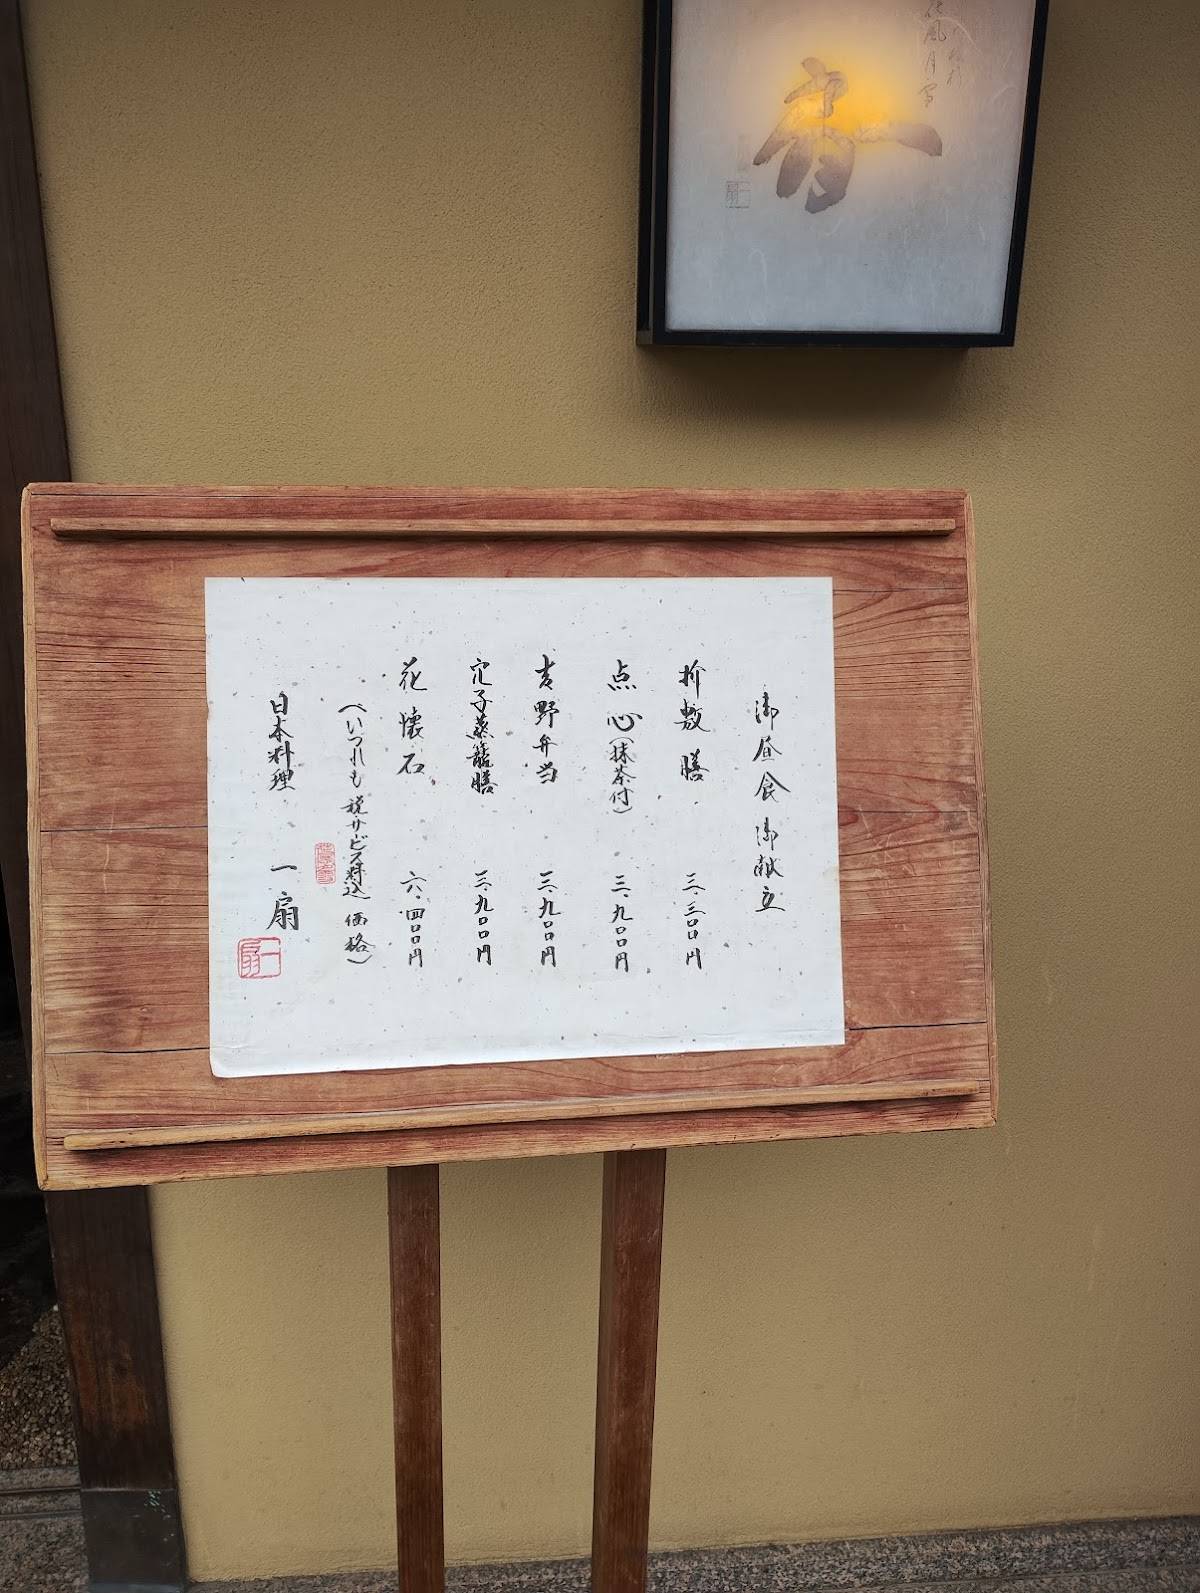 御昼食御献立
折敷膳 三、三〇〇円
点心(抹茶付) 三、九〇〇円
吉野弁当 三、九〇〇円
穴子蒸籠膳 三、九〇〇円
花懐石 六、四〇〇円
(いづれも 税サービス料込 価格)
日本料理 一扇
一扇
一扇